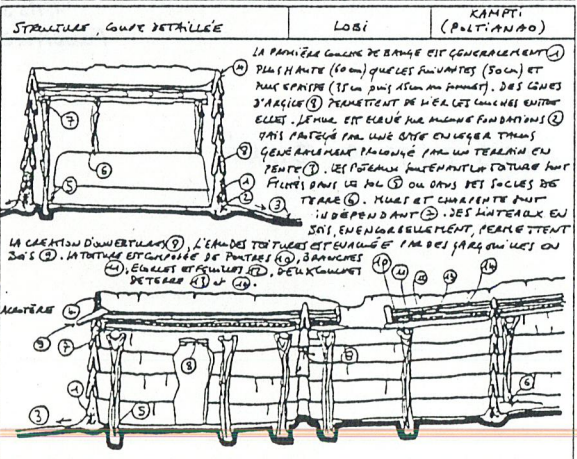 STRUCTURE, COUPE DETAILLÉE
LOBI
KAMPTI
(POLTIANAO)
LA PREMIÈRE COUCHE DE BANGE EST GENERALEMENT ①
PLUS HAUTE (60cm) QUE LES SUIVANTES (50cm) ET
PLUS EPAISSE (35cm puis 15cm au sommet). DES CÔNES
D'ARGILE ⑧ PERMETTENT DE LIER LES COUCHES ENTRE
ELLES. LE MUR EST ELEVÉ SUR AUCUNE FONDATIONS ②
MAIS PROTEGÉ PAR UNE BASE EN LEGER TALUS
GENERALEMENT PROLONGÉ PAR UN TERRAIN EN
PENTE ③. LES POTEAUX SOUTENANT LA TOITURE SONT
FICHÉS DANS LE SOL ⑤ OU DANS DES SOCLES DE
TERRE ⑥. MURS ET CHARPENTE SONT
INDÉPENDANT ⑦. DES LINTEAUX EN
BOIS, EN ENCORBELLEMENT, PERMETTENT
LA CRÉATION D'OUVERTURES ⑧, L'EAU DES TOITURES EST EVACUÉE PAR DES GARGOUILLES EN
BOIS ⑨. LA TOITURE EST COMPOSÉE DE POUTRES ⑩, BRANCHES
⑪, ECORCES ET FEUILLES ⑫, DEUX COUCHES
DE TERRE ⑬ ET ⑭.
4
7
6
5
8
1
2
3
ACROTÈRE
4
9
7
1
3
5
8
10
11
6